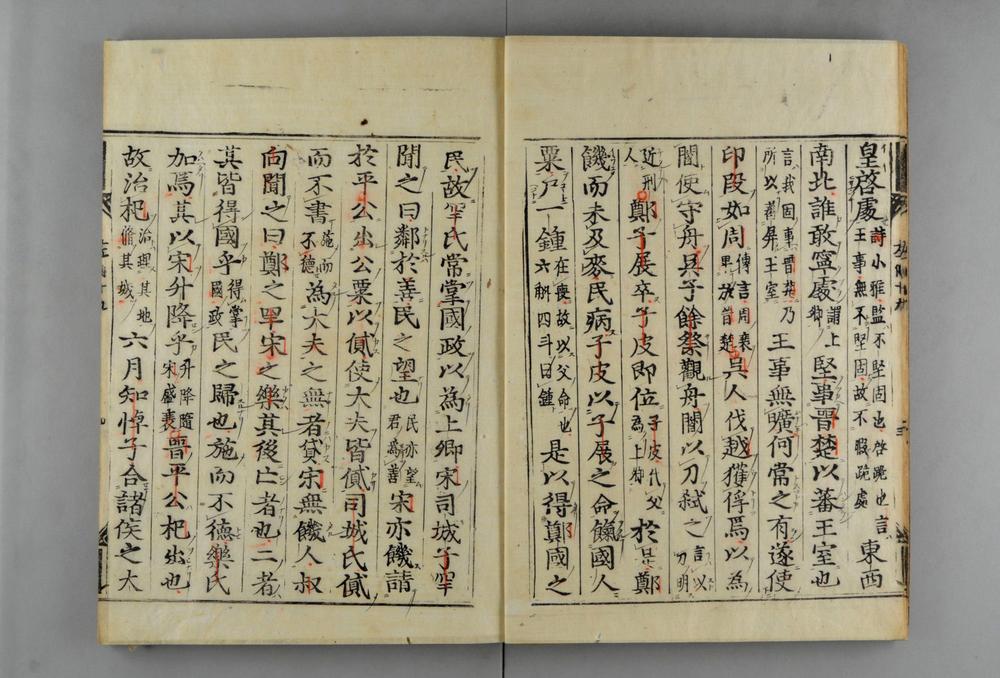 皇啓處詩小雅監不堅固也啓跪也言王事無不堅固故不暇跪處東西
南北誰敢寧處謂上卿堅事晉楚以蕃王室也
言我固事晉楚乃所以蕃屏王室王事無曠何常之有遂使
印段如周傳言周衰卑於晉楚吳人伐越獲俘焉以為
閽使守舟吳子餘祭觀舟閽以刀弑之言以刀明
近刑人鄭子展卒子皮即位子皮代父為上卿於是鄭
饑而未及麥民病子皮以子展之命餼國人
粟戶一鍾在喪故以父命也六斛四斗曰鍾是以得鄭國之
民故罕氏常掌國政以為上卿宋司城子罕
聞之曰鄰於善民之望也民亦望君為善宋亦饑請
於平公出公粟以貸使大夫皆貸司城氏貸
而不書施而不德為大夫之無者貸宋無饑人叔
向聞之曰鄭之罕宋之樂其後亡者也二者
其皆得國乎得掌國政民之歸也施而不德樂氏
加焉其以宋升降乎升降隨宋盛衰晉平公杞出也
故治杞治理其地脩其城六月知悼子合諸侯之大